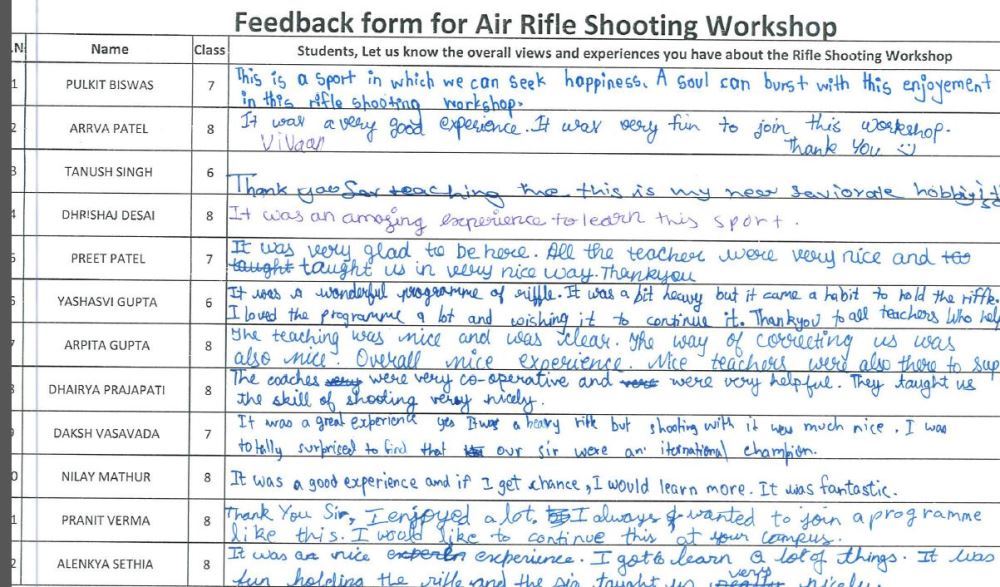 Feedback form for Air Rifle Shooting Workshop
.N Name Class Students, Let us know the overall views and experiences you have about the Rifle Shooting Workshop
1 PULKIT BISWAS 7 This is a sport in which we can seek happiness. A soul can burst with this enjoyement
in this rifle shooting workshop.
2 ARRVA PATEL 8 It was a very good experience. It was very fun to join this workshop.
Vivaan Thank You
3 TANUSH SINGH 6
Thank you for teaching me this is my new
4 DHRISHAJ DESAI 8 It was an amazing experience to learn this sport.
5 PREET PATEL 7 It was very glad to be here. All the teacher were very nice and
taught taught us in very nice way. Thankyou
6 YASHASVI GUPTA 6 It was a wonderful programme of riffle. It was a bit heavy but it came a habit to hold the riffle.
I loved the programme a lot and wishing it to continue it. Thankyou to all teachers who help
7 ARPITA GUPTA 8 The teaching was nice and was clear. The way of correcting us was
also nice. Overall nice experience. Nice teachers were also there to sup
8 DHAIRYA PRAJAPATI 8 The coaches very were very co-operative and were very helpful. They taught us
the skill of shooting very nicely.
9 DAKSH VASAVADA 7 It was a great experience yes It was a heavy rifle but shooting with it was much nice. I was
totally surprised to find that our sir were an iternational champion.
0 NILAY MATHUR 8 It was a good experience and if I get chance, I would learn more. It was fantastic.
1 PRANIT VERMA 8 Thank You Sir, I enjoyed a lot. I always wanted to join a programme
like this. I would like to continue this at your campus.
2 ALENKYA SETHIA 8 It was an nice experience. I got to learn a lot of things. It was
fun holding the rifle and the sir taught us very nicely